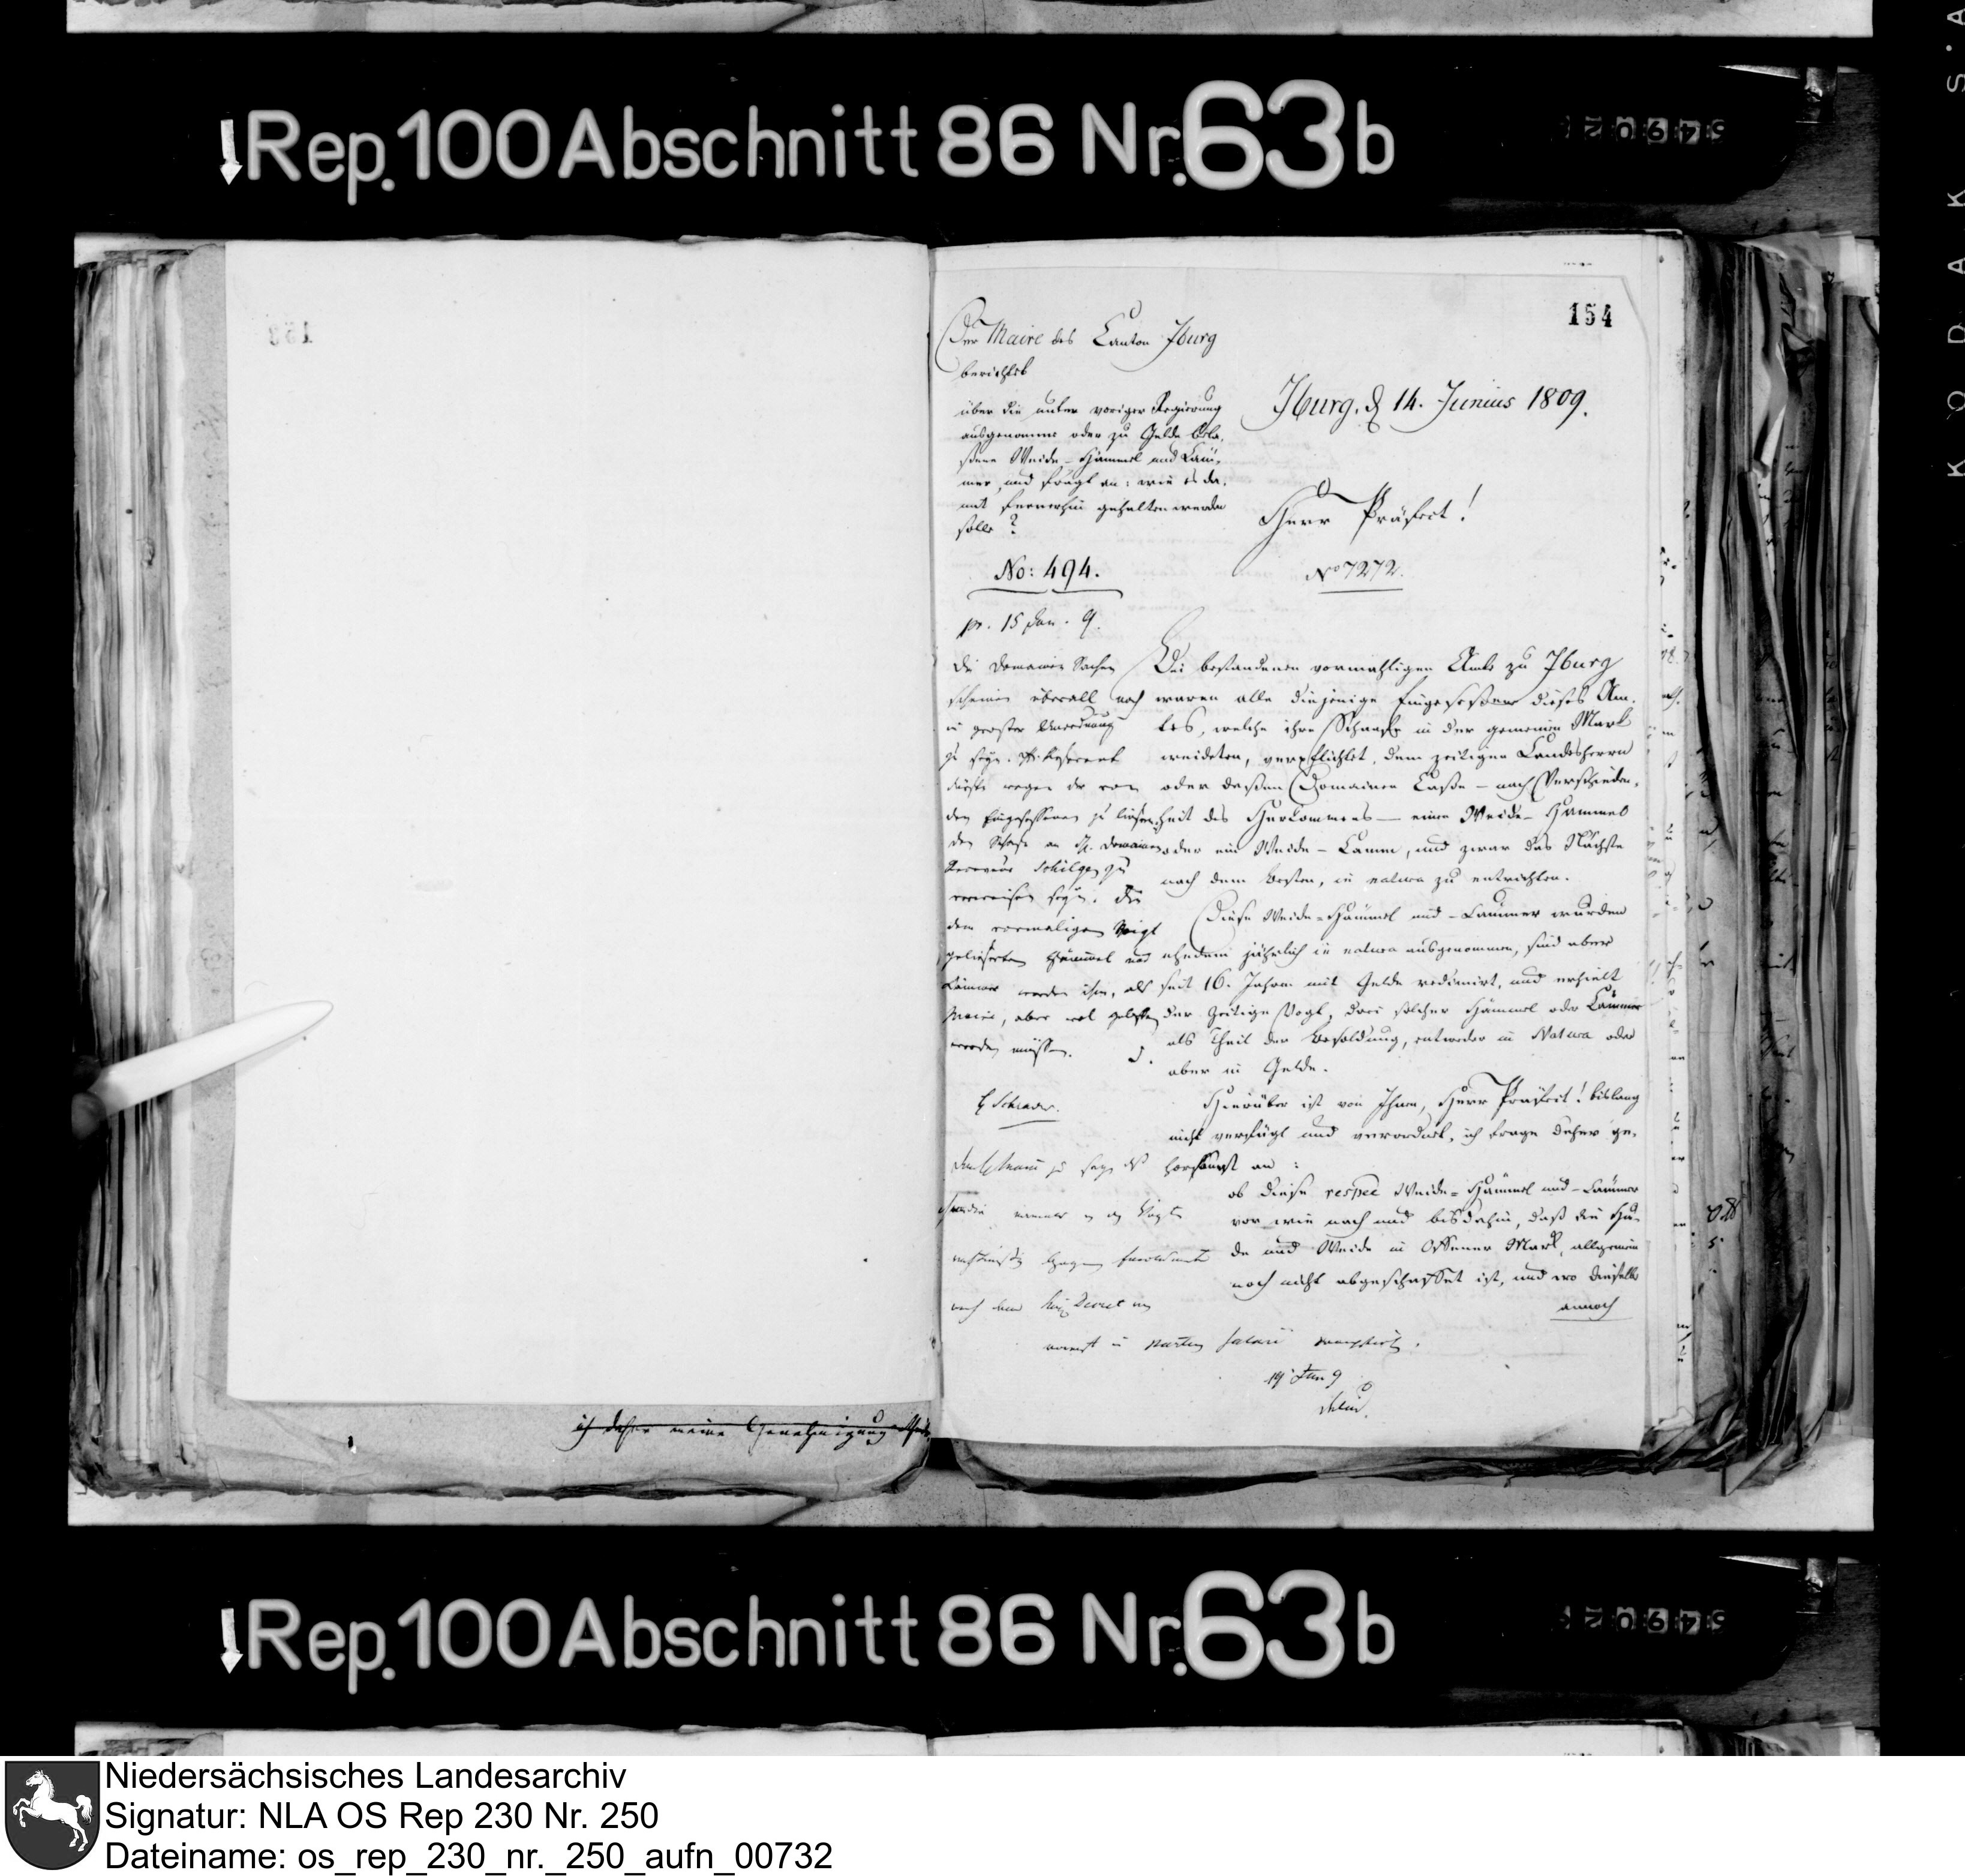 Rep. 100 Abschnitt 86 Nr. 63b
154
Der Maire des Canton Iburg
berichtet
über die unter voriger Regierung
ausgenommene oder zu Gelde
Weide-Hämmel und Läm-
mer, und frägt an: wie es da-
mit fernerhin gehalten werden
solle?
No: 494.
pr. 15 Jun. 9.
Iburg, d. 14. Junius 1809.
Herr Präfect!
No 7272.
Bei bestandenen vormahligen Amte zu Iburg
waren alle diejenige Eingesessene dieses Am-
tes, welche ihre Schaafe in der gemeinen Mark
weideten, verpflichtet, dem zeitigen Landesherrn
oder deßen Domainen Caße – nach Verschieden-
heit des Herkommens – einen Weide-Hammel
oder ein Weide-Lamm, und zwar das Nächste
nach dem Besten, in natura zu entrichten.
Diese Weide-Hämmel und -Lämmer wurden
ehedem jährlich in natura ausgenommen, sind aber
seit 16. Jahren mit Gelde redimirt, und erhielt
der zeitige Vogt, drei solcher Hämmel oder Lämmer
als Theil der Besoldung, entweder in Natura oder
aber in Gelde.
Hierüber ist von Ihnen, Herr Präfect! bislang
nicht verfügt und verordnet, ich frage daher ge-
horsamst an:
ob diese respec Weide-Hämmel und -Lämmer
vor wie nach und bis dahin, daß die Hü-
de und Weide in offener Mark, allgemein
noch nicht abgeschaffet ist, und wo dieselbe
annoch
Die Domainen Sachen
scheinen überall noch
in groster Unordnung
zu seyn. Referent
dürfte wegen der von
den Eingesessenen zu liefern-
den Schafe an Domainen
Receveur Schilgen zu
verweisen seyn. Die
dem vormaligen Voigt
gelieferten Hämmel und
Lämmer werden ihm, als
Maire, aber wol gelassen
werden müssen.
Schrader.
nach dem Decret
salarii
19 Jun 9
ich daher meine Genehmigung
Rep. 100 Abschnitt 86 Nr. 63b
KODAK S.A
Niedersächsisches Landesarchiv
Signatur: NLA OS Rep 230 Nr. 250
Dateiname: os_rep_230_nr._250_aufn_00732